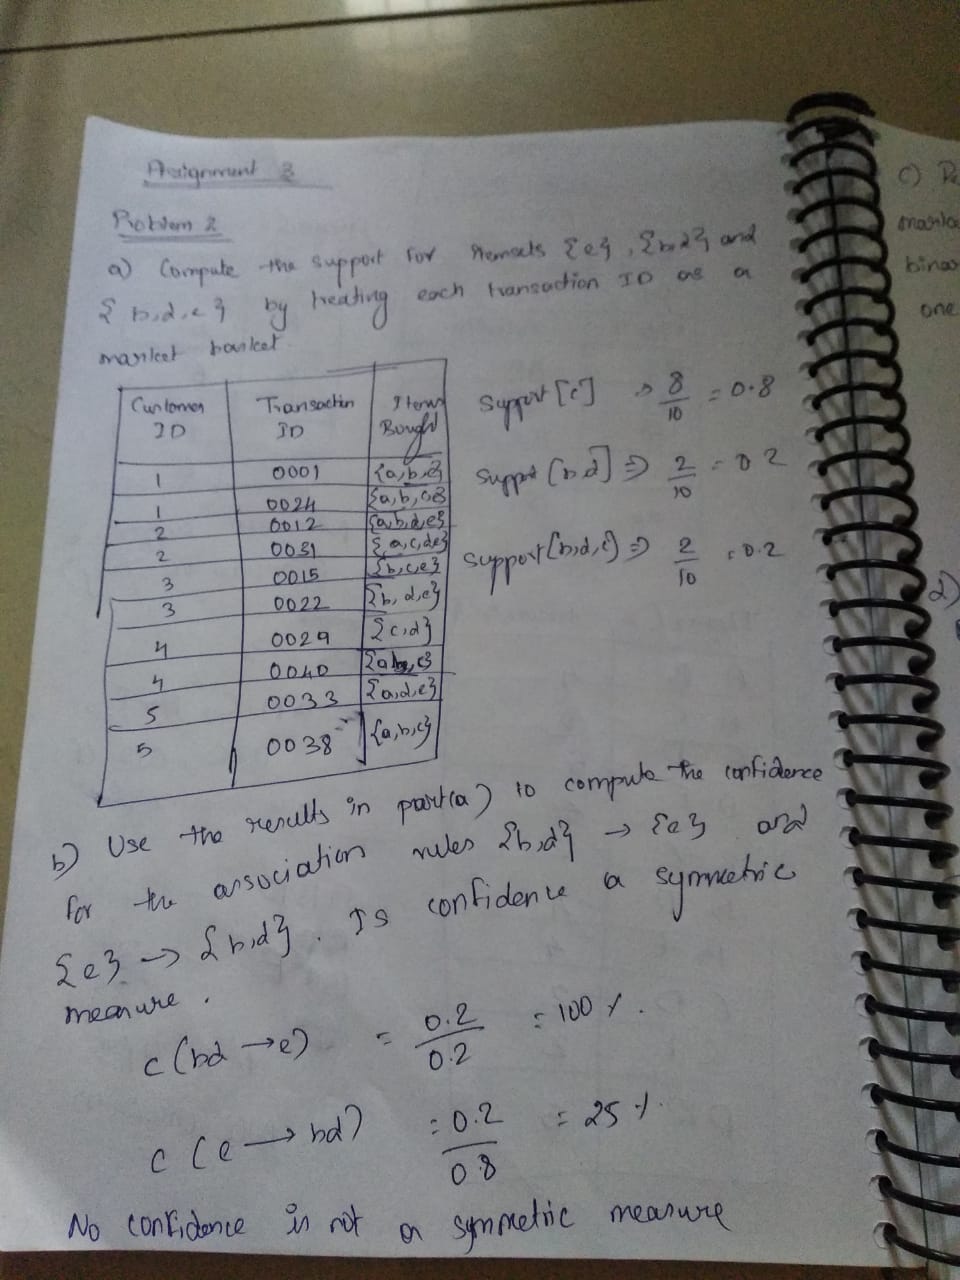 Assignment 3
Problem 2
a) Compute the support for itemsets {e}, {b,d} and
{b,d,e} by treating each transaction ID as a
market basket
Customer ID | Transaction ID | Items Bought
1 | 0001 | {a,b,e}
1 | 0024 | {a,b,c,e}
2 | 0012 | {a,b,d,e}
2 | 0031 | {a,c,d,e}
3 | 0015 | {b,c,e}
3 | 0022 | {b,d,e}
4 | 0029 | {c,d}
4 | 0040
5 | 0033 | {a,d,e}
5 | 0038
Support [e] ⇒ 8/10 = 0.8
Support [b,d] ⇒ 2/10 = 0.2
Support [b,d,e] ⇒ 2/10 = 0.2
b) Use the results in part(a) to compute the confidence
for the association rules {b,d} → {e} and
{e} → {b,d}. Is confidence a symmetric
measure.
c (bd → e) = 0.2/0.2 = 100 %.
c (e → bd) = 0.2/0.8 = 25 %.
No confidence is not a symmetric measure
c)
one
d)